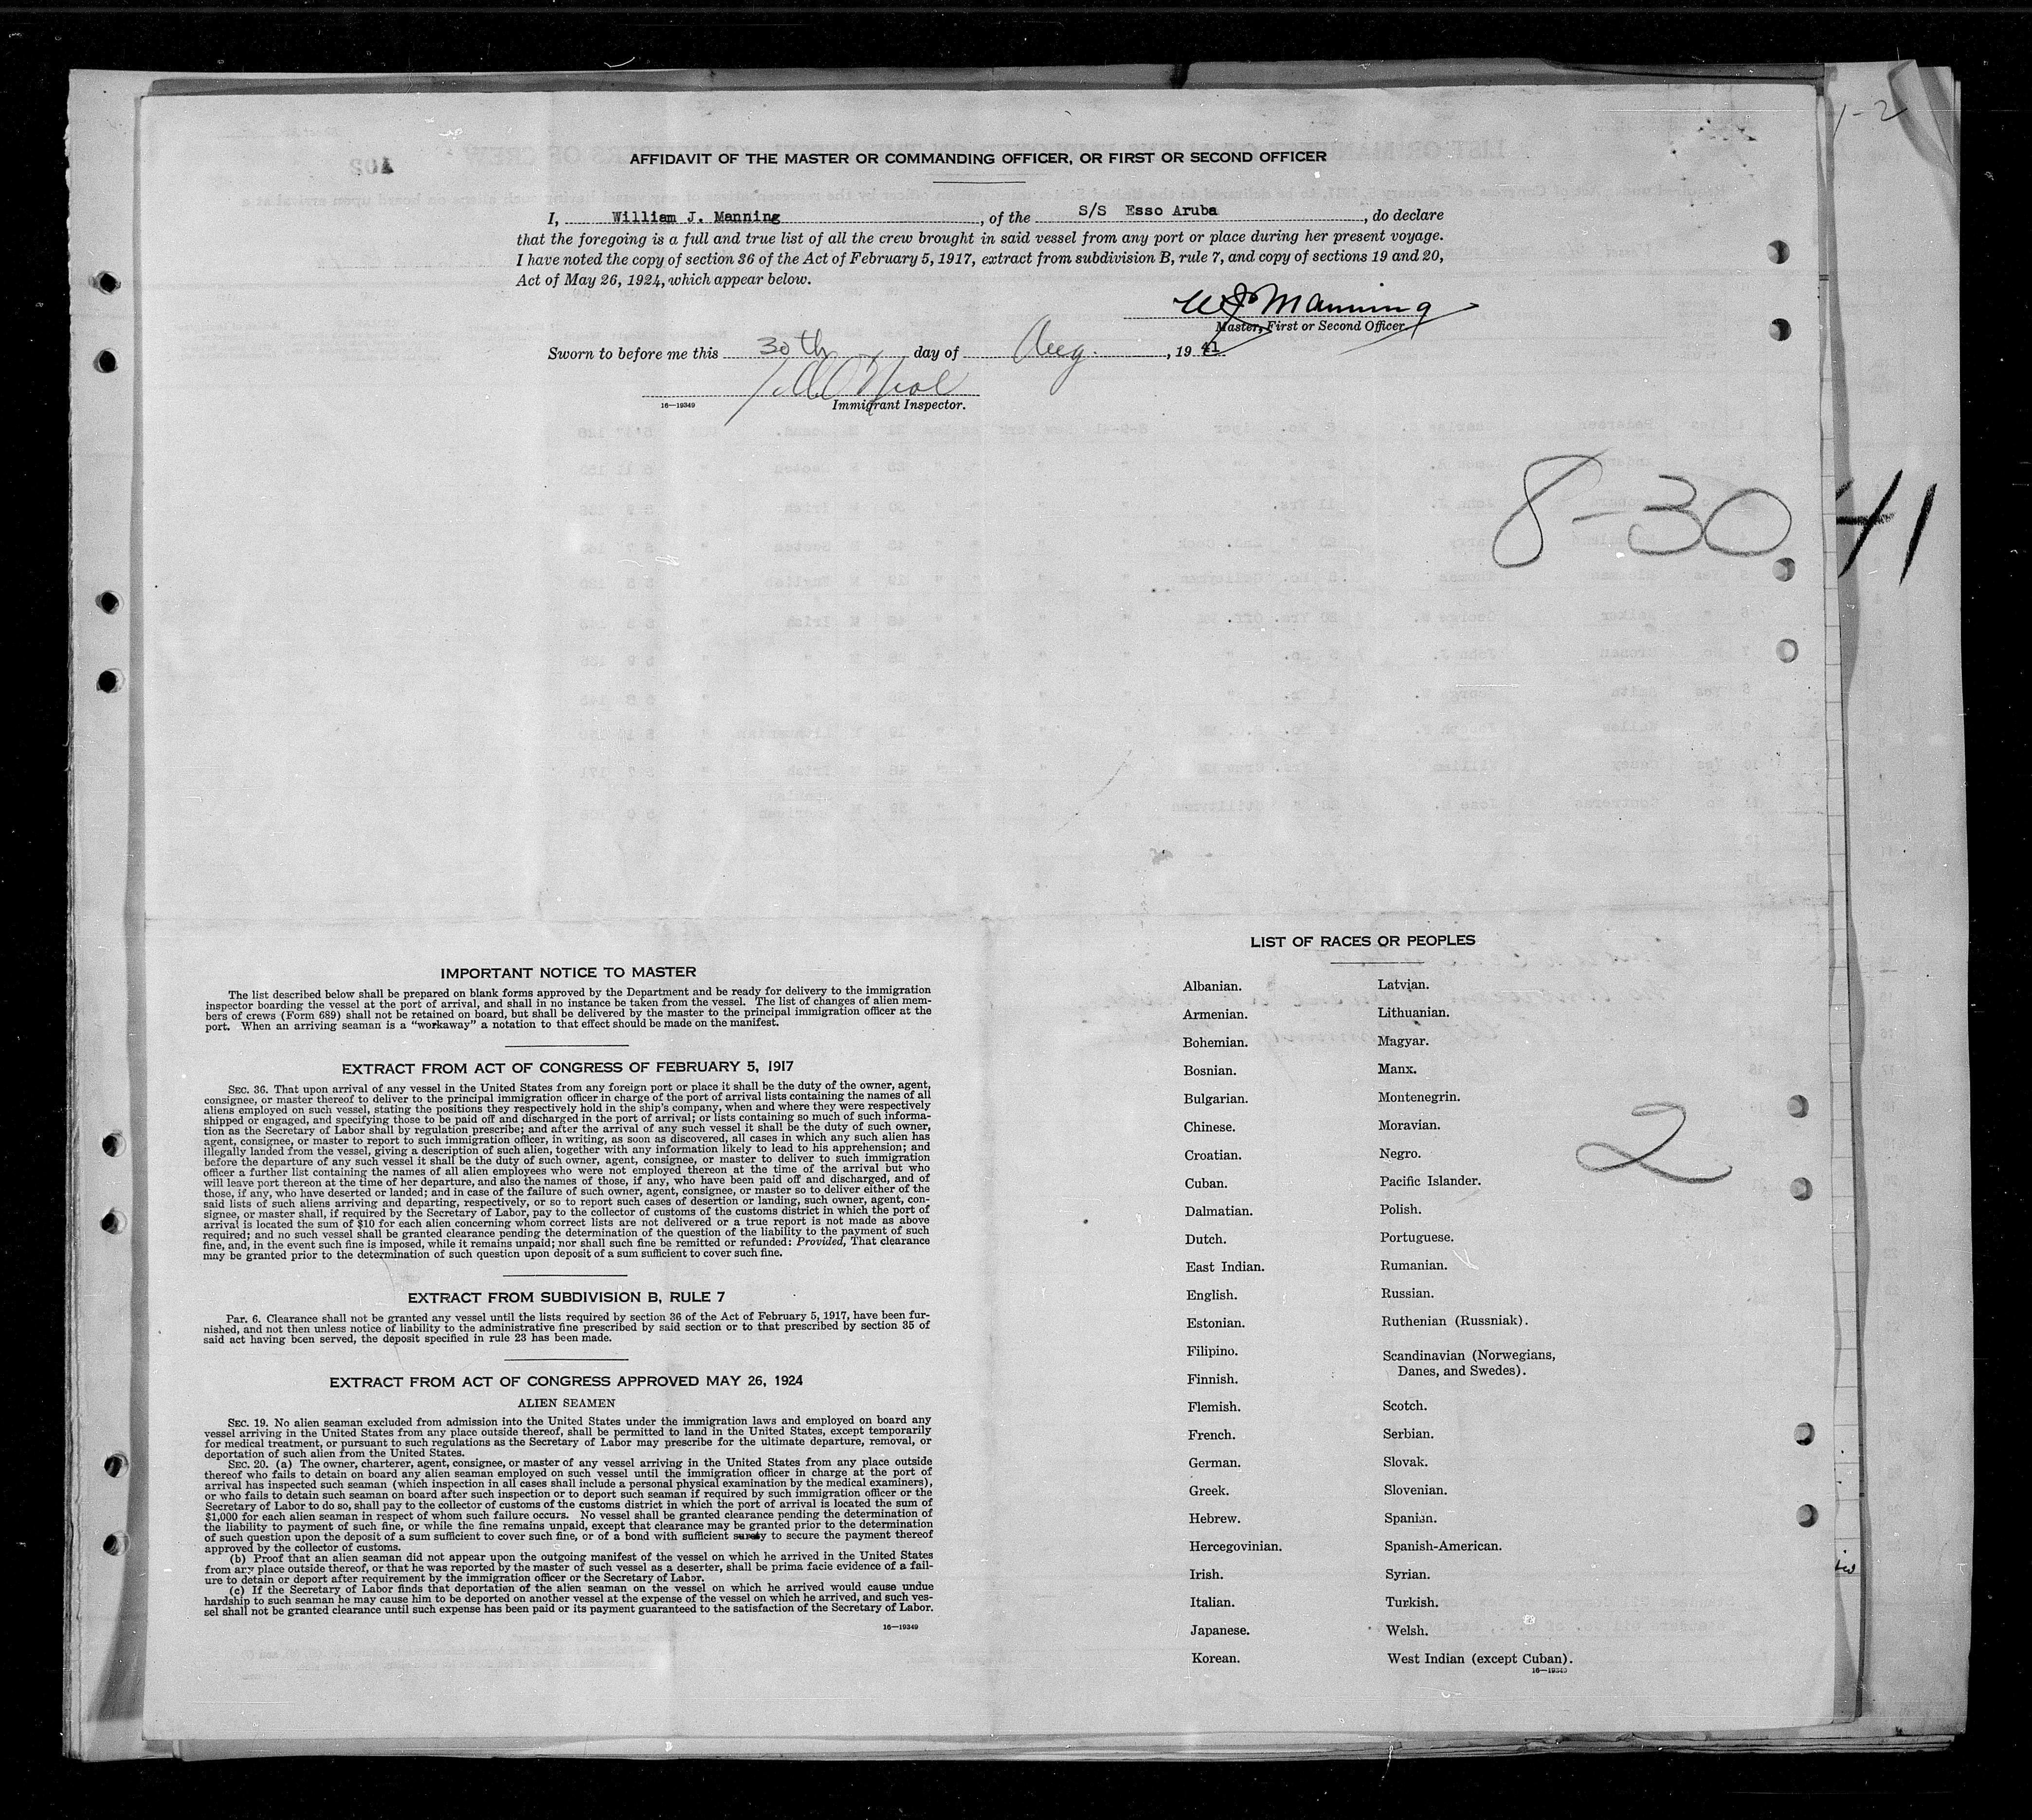 1-2
AFFIDAVIT OF THE MASTER OR COMMANDING OFFICER, OR FIRST OR SECOND OFFICER
I, William J. Manning, of the S/S Esso Aruba, do declare
that the foregoing is a full and true list of all the crew brought in said vessel from any port or place during her present voyage.
I have noted the copy of section 36 of the Act of February 5, 1917, extract from subdivision B, rule 7, and copy of sections 19 and 20,
Act of May 26, 1924, which appear below.
WJ Manning
Master, First or Second Officer
Sworn to before me this 30th day of Aug., 19 41
16—19349 Immigrant Inspector.
8-30 41
IMPORTANT NOTICE TO MASTER
The list described below shall be prepared on blank forms approved by the Department and be ready for delivery to the immigration
inspector boarding the vessel at the port of arrival, and shall in no instance be taken from the vessel. The list of changes of alien mem-
bers of crews (Form 689) shall not be retained on board, but shall be delivered by the master to the principal immigration officer at the
port. When an arriving seaman is a “workaway” a notation to that effect should be made on the manifest.
EXTRACT FROM ACT OF CONGRESS OF FEBRUARY 5, 1917
SEC. 36. That upon arrival of any vessel in the United States from any foreign port or place it shall be the duty of the owner, agent,
consignee, or master thereof to deliver to the principal immigration officer in charge of the port of arrival lists containing the names of all
aliens employed on such vessel, stating the positions they respectively hold in the ship's company, when and where they were respectively
shipped or engaged, and specifying those to be paid off and discharged in the port of arrival; or lists containing so much of such informa-
tion as the Secretary of Labor shall by regulation prescribe; and after the arrival of any such vessel it shall be the duty of such owner,
agent, consignee, or master to report to such immigration officer, in writing, as soon as discovered, all cases in which any such alien has
illegally landed from the vessel, giving a description of such alien, together with any information likely to lead to his apprehension; and
before the departure of any such vessel it shall be the duty of such owner, agent, consignee, or master to deliver to such immigration
officer a further list containing the names of all alien employees who were not employed thereon at the time of the arrival but who
will leave port thereon at the time of her departure, and also the names of those, if any, who have been paid off and discharged, and of
those, if any, who have deserted or landed; and in case of the failure of such owner, agent, consignee, or master so to deliver either of the
said lists of such aliens arriving and departing, respectively, or so to report such cases of desertion or landing, such owner, agent, con-
signee, or master shall, if required by the Secretary of Labor, pay to the collector of customs of the customs district in which the port of
arrival is located the sum of $10 for each alien concerning whom correct lists are not delivered or a true report is not made as above
required; and no such vessel shall be granted clearance pending the determination of the question of the liability to the payment of such
fine, and, in the event such fine is imposed, while it remains unpaid; nor shall such fine be remitted or refunded: Provided, That clearance
may be granted prior to the determination of such question upon deposit of a sum sufficient to cover such fine.
EXTRACT FROM SUBDIVISION B, RULE 7
Par. 6. Clearance shall not be granted any vessel until the lists required by section 36 of the Act of February 5, 1917, have been fur-
nished, and not then unless notice of liability to the administrative fine prescribed by said section or to that prescribed by section 35 of
said act having been served, the deposit specified in rule 23 has been made.
EXTRACT FROM ACT OF CONGRESS APPROVED MAY 26, 1924
ALIEN SEAMEN
SEC. 19. No alien seaman excluded from admission into the United States under the immigration laws and employed on board any
vessel arriving in the United States from any place outside thereof, shall be permitted to land in the United States, except temporarily
for medical treatment, or pursuant to such regulations as the Secretary of Labor may prescribe for the ultimate departure, removal, or
deportation of such alien from the United States.
SEC. 20. (a) The owner, charterer, agent, consignee, or master of any vessel arriving in the United States from any place outside
thereof who fails to detain on board any alien seaman employed on such vessel until the immigration officer in charge at the port of
arrival has inspected such seaman (which inspection in all cases shall include a personal physical examination by the medical examiners),
or who fails to detain such seaman on board after such inspection or to deport such seaman if required by such immigration officer or the
Secretary of Labor to do so, shall pay to the collector of customs of the customs district in which the port of arrival is located the sum of
$1,000 for each alien seaman in respect of whom such failure occurs. No vessel shall be granted clearance pending the determination of
the liability to payment of such fine, or while the fine remains unpaid, except that clearance may be granted prior to the determination
of such question upon the deposit of a sum sufficient to cover such fine, or of a bond with sufficient surety to secure the payment thereof
approved by the collector of customs.
(b) Proof that an alien seaman did not appear upon the outgoing manifest of the vessel on which he arrived in the United States
from any place outside thereof, or that he was reported by the master of such vessel as a deserter, shall be prima facie evidence of a fail-
ure to detain or deport after requirement by the immigration officer or the Secretary of Labor.
(c) If the Secretary of Labor finds that deportation of the alien seaman on the vessel on which he arrived would cause undue
hardship to such seaman he may cause him to be deported on another vessel at the expense of the vessel on which he arrived, and such ves-
sel shall not be granted clearance until such expense has been paid or its payment guaranteed to the satisfaction of the Secretary of Labor.
16—19349
LIST OF RACES OR PEOPLES
Albanian.
Armenian.
Bohemian.
Bosnian.
Bulgarian.
Chinese.
Croatian.
Cuban.
Dalmatian.
Dutch.
East Indian.
English.
Estonian.
Filipino.
Finnish.
Flemish.
French.
German.
Greek.
Hebrew.
Hercegovinian.
Irish.
Italian.
Japanese.
Korean.
Latvian.
Lithuanian.
Magyar.
Manx.
Montenegrin.
Moravian.
Negro.
Pacific Islander.
Polish.
Portuguese.
Rumanian.
Russian.
Ruthenian (Russniak).
Scandinavian (Norwegians,
Danes, and Swedes).
Scotch.
Serbian.
Slovak.
Slovenian.
Spanish.
Spanish-American.
Syrian.
Turkish.
Welsh.
West Indian (except Cuban).
16—19349
2